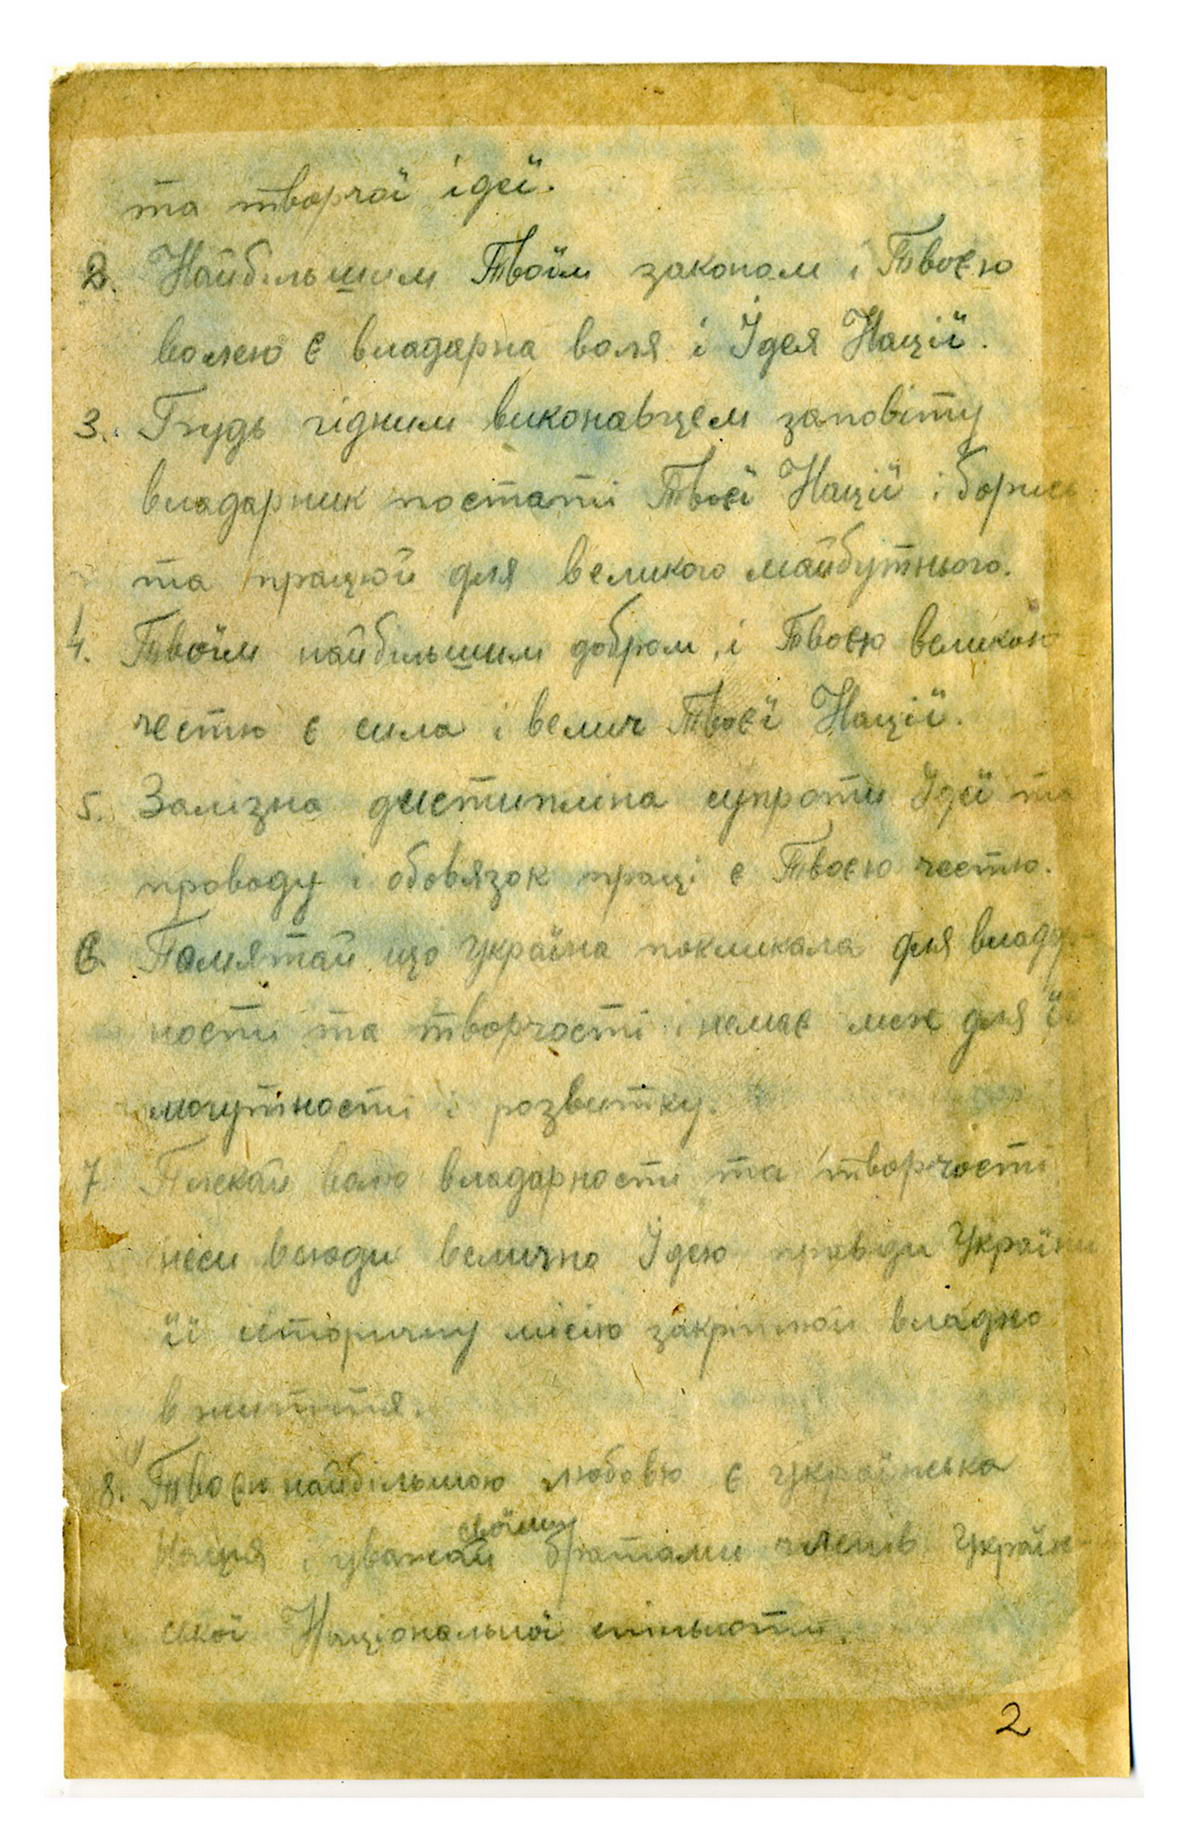 та творчої ідеї.
2. Найбільшим Твоїм законом і Твоєю
волею є владарна воля і Ідея Нації.
3. Будь гідним виконавцем заповіту
владарник постаті Твоєї Нації і борись
та працюй для великого майбутнього.
4. Твоїм найбільшим добром, і Твоєю великою
честю є сила і велич Твоєї Нації.
5. Залізна дистипліна супроти Ідеї та
проводу і обовязок праці є Твоєю честю.
6. Памятай що Україна покликала для владар-
ности та творчості і немає меж для її
могутности і розвитку.
7. Плекай волю владарности та творчости
неси всюди велична Ідею правди України
її історичну місію закріплюй владно
в життя.
8. Твоєю найбільшою любовю є українська
Нація і уважай своїми братами членів Україн-
ської Національної спільноти.
2